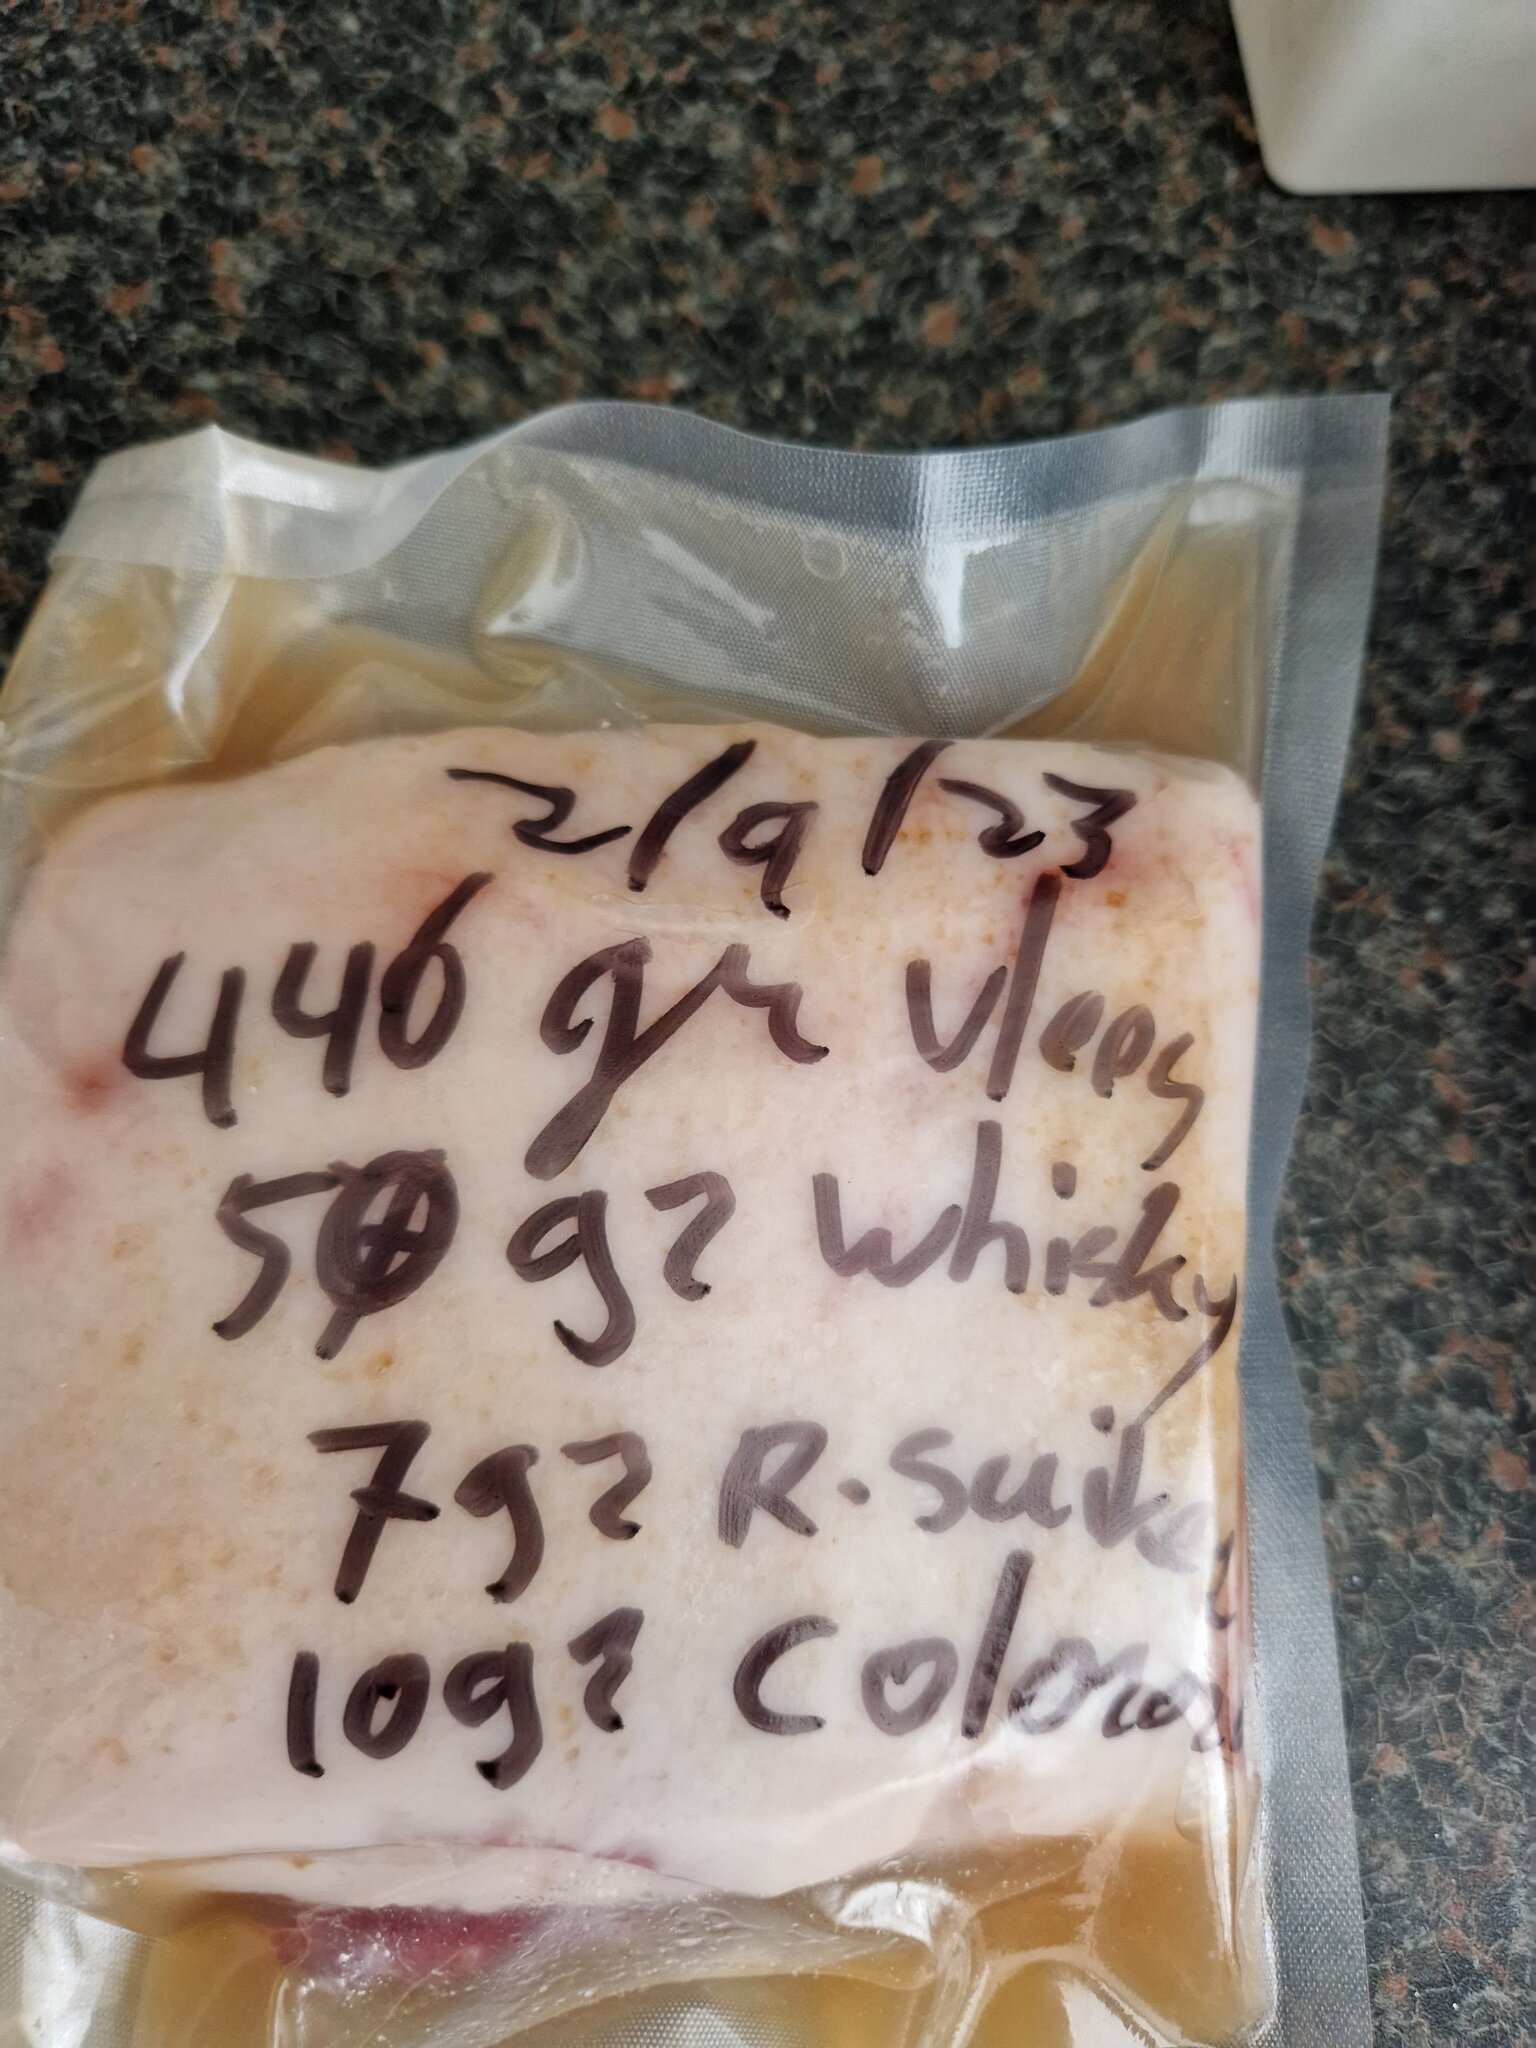 2/9/23
446 gr vlees
50 gr whisky
7 gr R.suiker
10 gr Colorozo